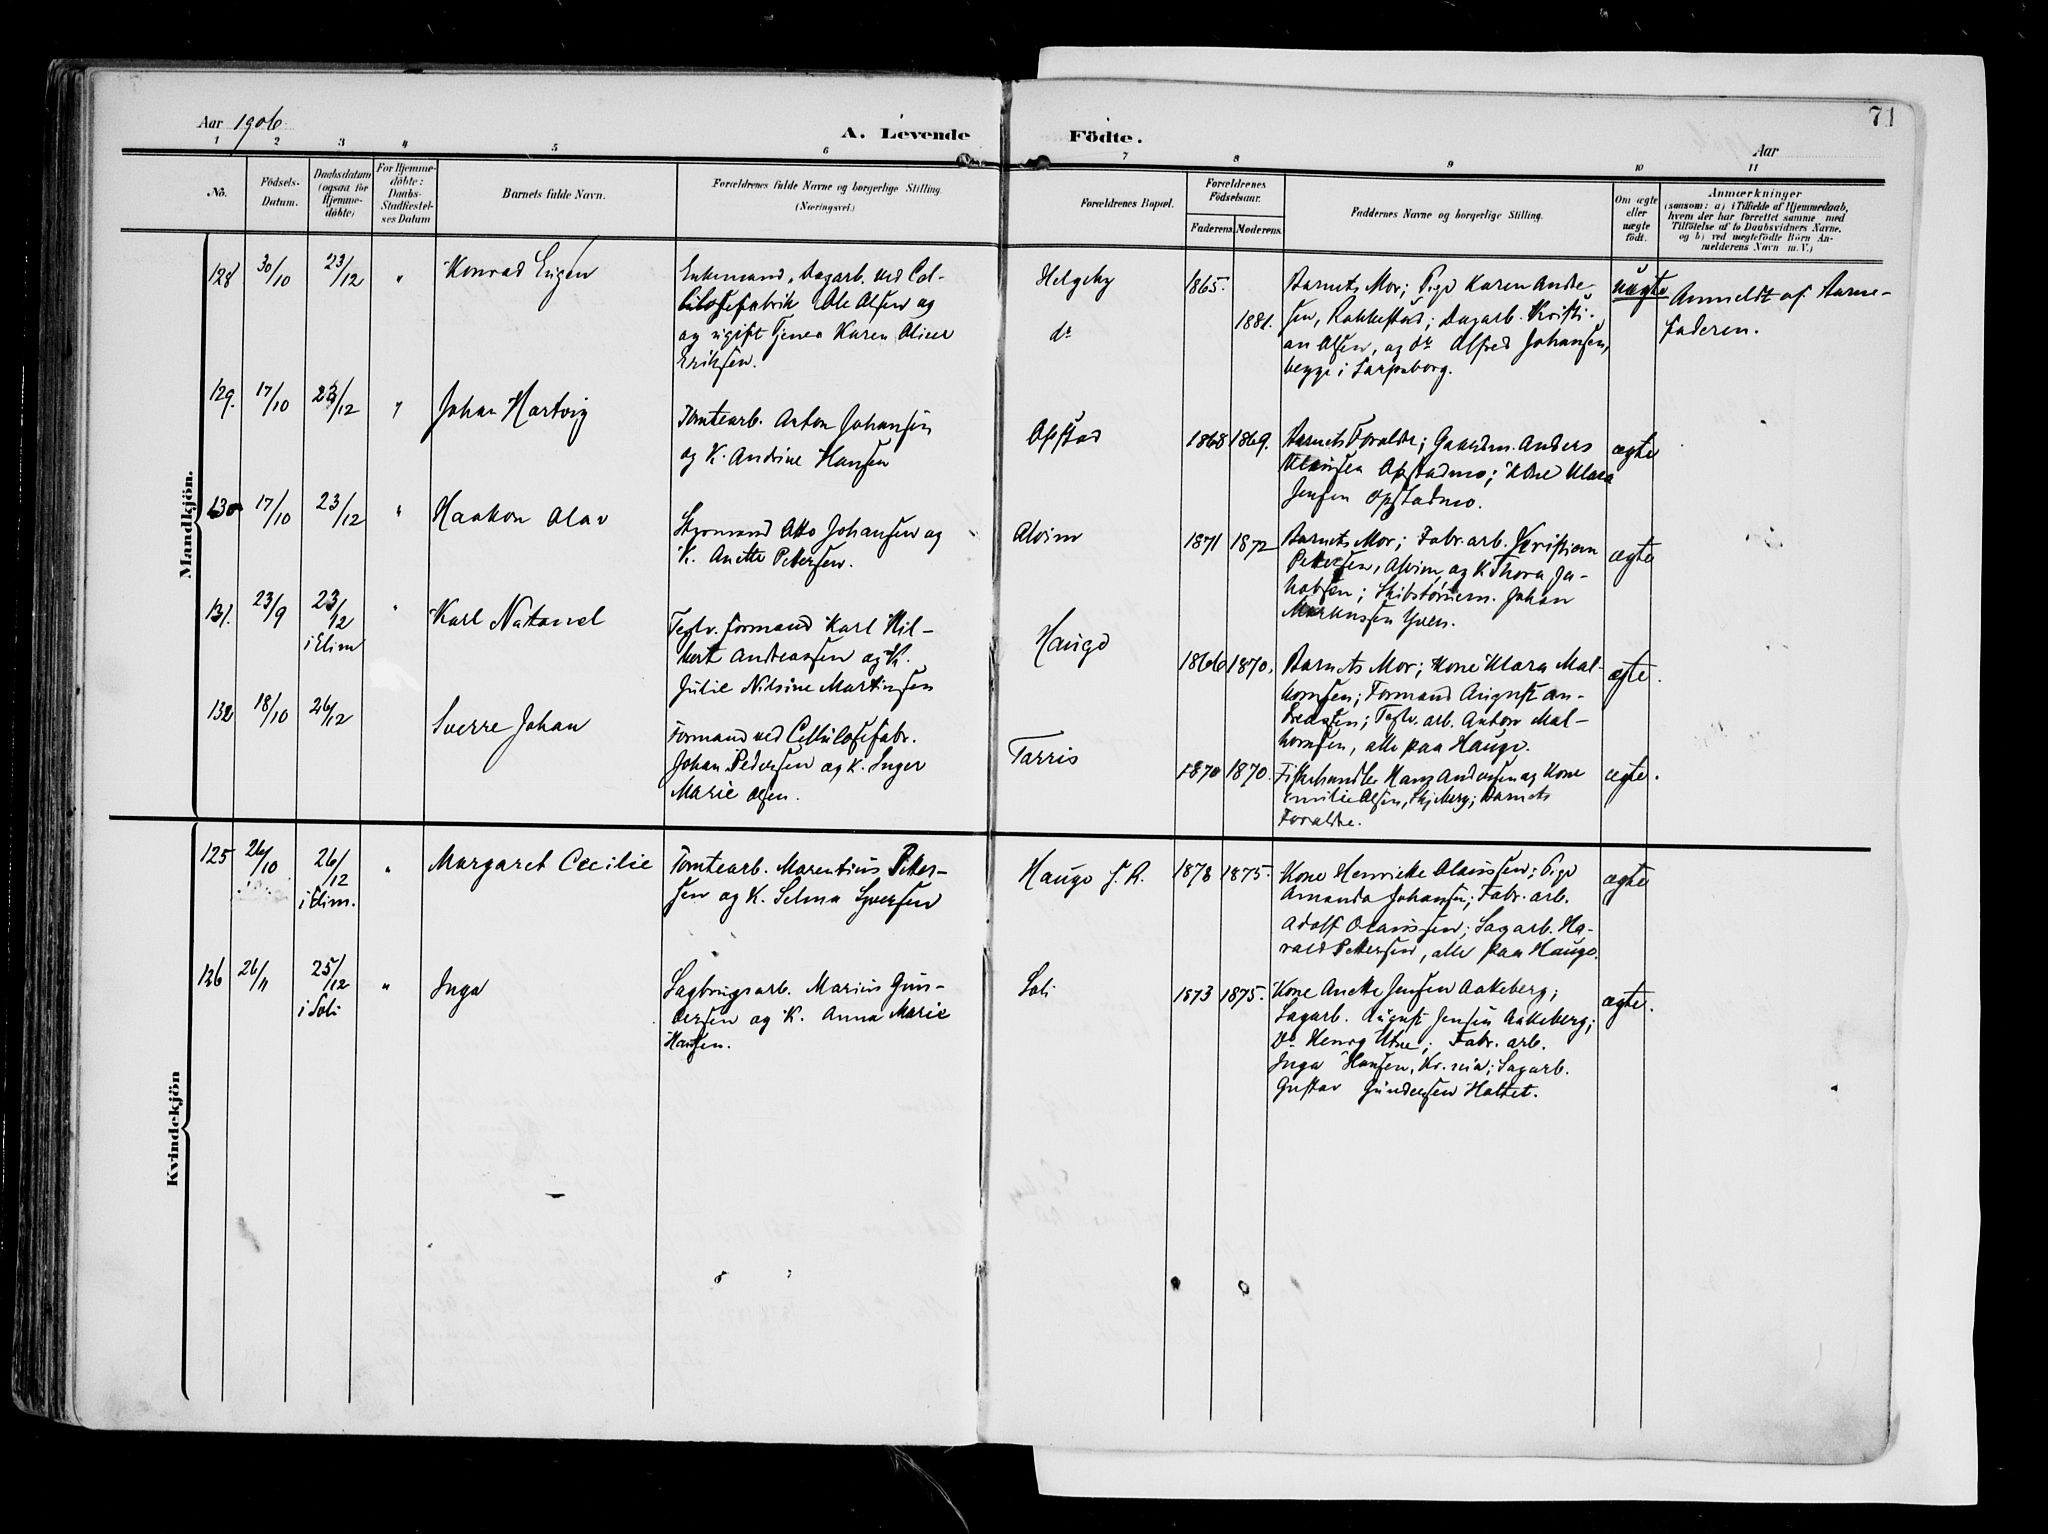 71
Aar 1906
A. Levende Födte.
Aar
1 2 3 4 5 6 7 8 9 10 11
No.
Födsels-
Datum.
Daabsdatum
(ogsaa for
Hjemme-
döbte)
For Hjemme-
döbte:
Daabs-
Stadfæstel-
ses Datum
Barnets fulde Navn.
Forældrenes fulde Navne og borgerlige Stilling.
(Næringsvei.)
Forældrenes Bopæl.
Forældrenes
Födselsaar.
Faderens Moderens.
Faddernes Navne og borgerlige Stilling.
Om ægte
eller
uægte
födt.
Anmærkninger
(saasom: a) i Tilfælde af Hjemmedaab,
hvem der har forrettet samme, med
Tilföielse af to Daabsvidners Navne,
og b) ved uægtefödte Börn An-
melderens Navn m. V.)
Mandkjön.
128 30/10 23/12 " Konrad Eugen
Enkemand, Dagarb. ved Cel-
lulosefabrik Ole Olsen og
og ugift Tjener Karen Oliver
Eriksen.
Helgeby
do
1865.
1881.
Barnets Mor; Pige Karen Andre-
sen, Rakkestad; Dagarb. Kristi-
an Olsen, og do Alfred Johansen,
begge i Sarpsborg.
uægte
Anmeldt af Barne-
faderen.
129. 17/10 23/12 " Johan Hartvig
Tomtearb. Anton Johansen
og K. Andrine Hansen
Opstad
1868 1869.
Barnets Forældre; Gaardm. Anders
Olaussen Opstadmo; Kone Klara
Jensen Opstadmo.
ægte
130 17/10 23/12 " Haakon Olav
Styrmand Otto Johansen og
K. Anette Pettersen.
Alvim
1871 1872
Barnets Mor; Fabr. arb. Kristian
Pettersen, Alvim, og K. Thora Ja-
kobsen; Skibstømm. Johan
Markussen Yven.
ægte
131. 23/9 23/12
i Elim
" Karl Natanael
Teglv. formand Karl Hil-
bert Andreassen og K.
Julie Nilsine Martinsen
Hauge
1866 1870.
Barnets Mor; Kone Klara Mal-
kornsen; Formand August An-
dreassen; Teglv. arb. Anton Mal-
kornsen, alle paa Hauge.
ægte.
132 18/10 26/12 Sverre Johan
Formand ved Cellulosefabr.
Johan Pedersen og K. Inger
Marie Olsen.
Tarris
1870 1870.
Fiskehandler Hans Andersen og Kone
Emilie Olsen, Skjeberg; Barnets
Forældre.
ægte.
Kvindekjön
125 26/10 26/12
i Elim.
" Margaret Cecilie
Tomtearb. Marentius Petter-
sen og K. Selma Syversen
Hauge J. R.
1878 1875.
Kone Henriette Olaussen; Pige
Amanda Johansen; Fabr. arb.
Adolf Olaussen; Sagarb. Ha-
rald Pettersen, alle paa Hauge.
ægte
126 26/11 25/12
i Soli
" Inga
Sagbrugsarb. Marius Gun-
dersen og K. Anna Marie
Hansen.
Soli
1873 1875.
Kone Anette Jensen Aakeberg;
Sagarb. August Jensen Aakeberg;
Do Henry Utne; Fabr. arb.
Inga Hansen, Kr.nia; Sagarb.
Gustav Gundersen Hattet.
ægte.